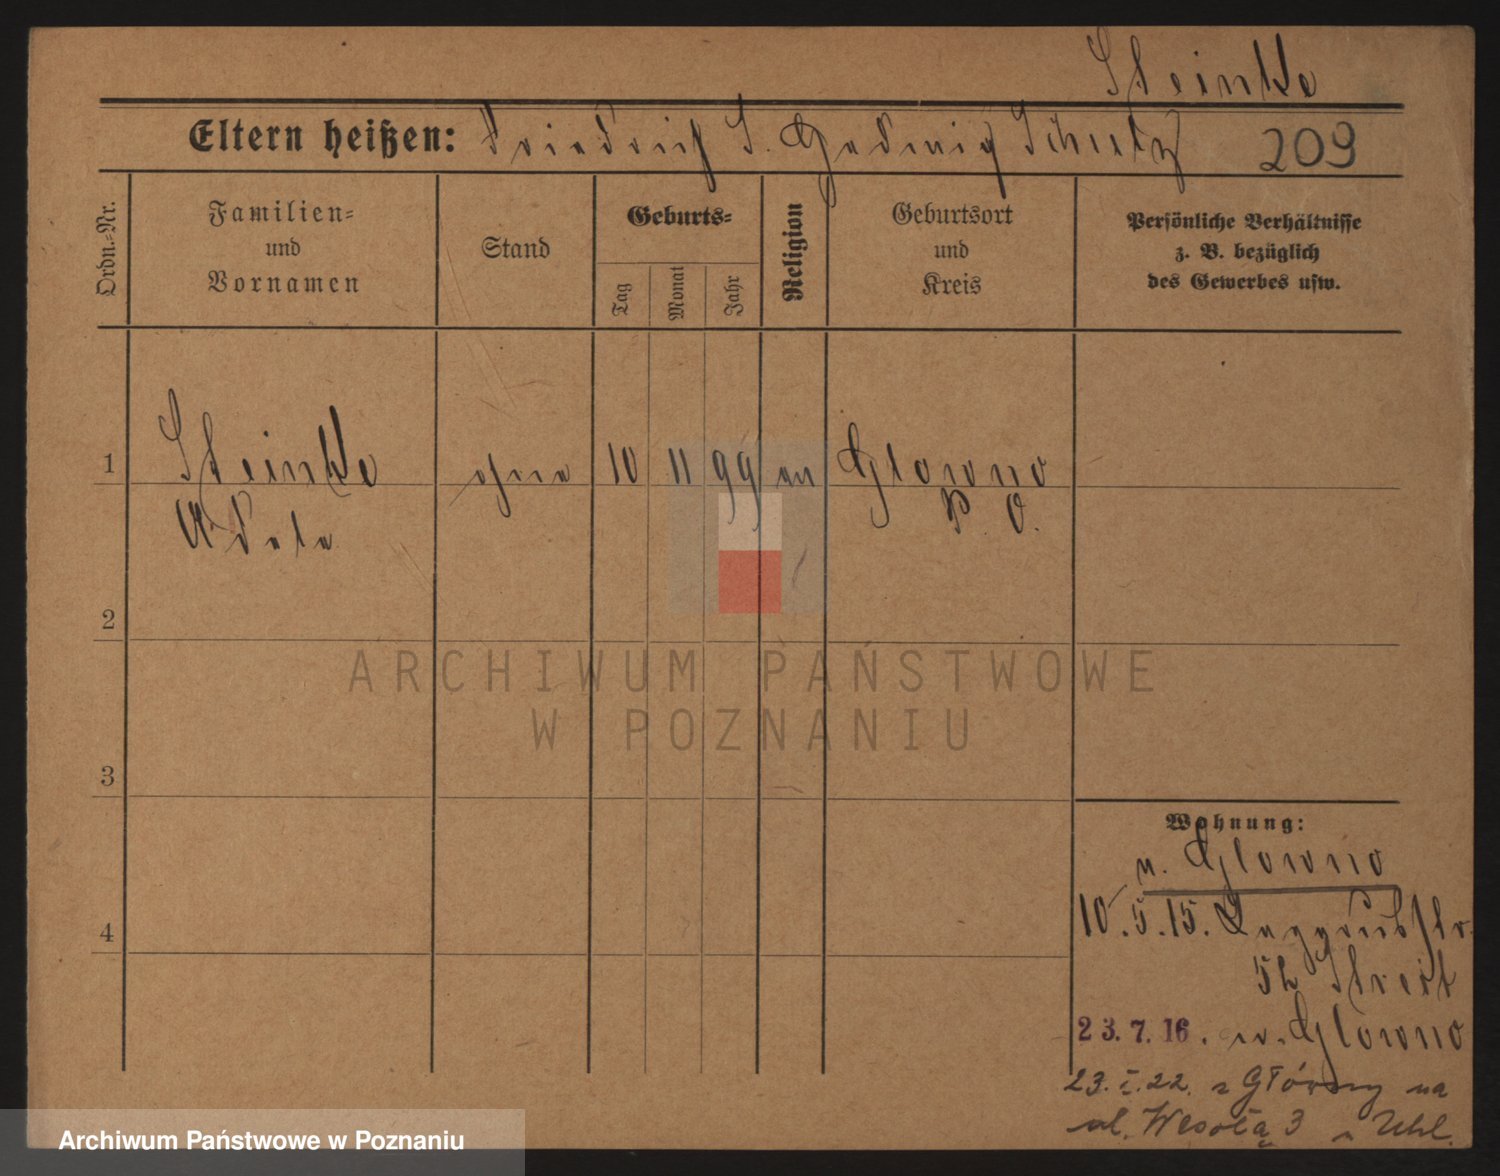 Steinke
Eltern heißen: Friedrich S. Hedwig Schulz 209
Ordn.-Nr.
Familien-
und
Vornamen
Stand
Geburts-
Tag
Monat
Jahr
Religion
Geburtsort
und
Kreis
Persönliche Verhältnisse
z. B. bezüglich
des Gewerbes usw.
1 Steinke ohne 10 11 99 ev Glowno
Adele P. O.
2
3
4
Wohnung:
n. Glowno
10.5.15.
23.7.16. n. Glowno
23.I.22. z Główny na
ul. Wesoła 3
ARCHIWUM PAŃSTWOWE
W POZNANIU
Archiwum Państwowe w Poznaniu